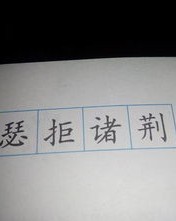 瑟拒诸荆